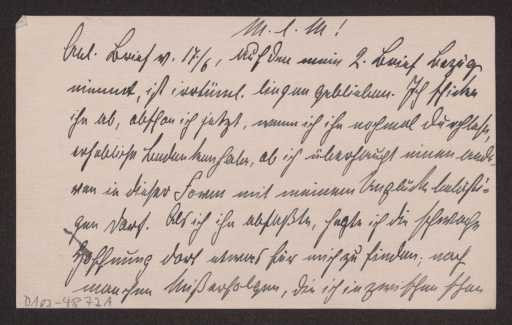 M. l. M!
Anl. Brief v. 17/6, auf den mein 2. Brief Bezug
nimmt, ist irrtüml. liegen geblieben. Ich schicke
ihn ab, obschon ich jetzt, wenn ich ihn nochmal durchlese,
erhebliche Bedenken habe, ob ich überhaupt einen ande-
ren in dieser Form mit meinem Unglück belästi-
gen darf. Als ich ihn abfaßte, hegte ich die schwache
Hoffnung dort etwas für mich zu finden, nach
manchen Mißerfolgen, die ich inzwischen schon
D 102-4872 1